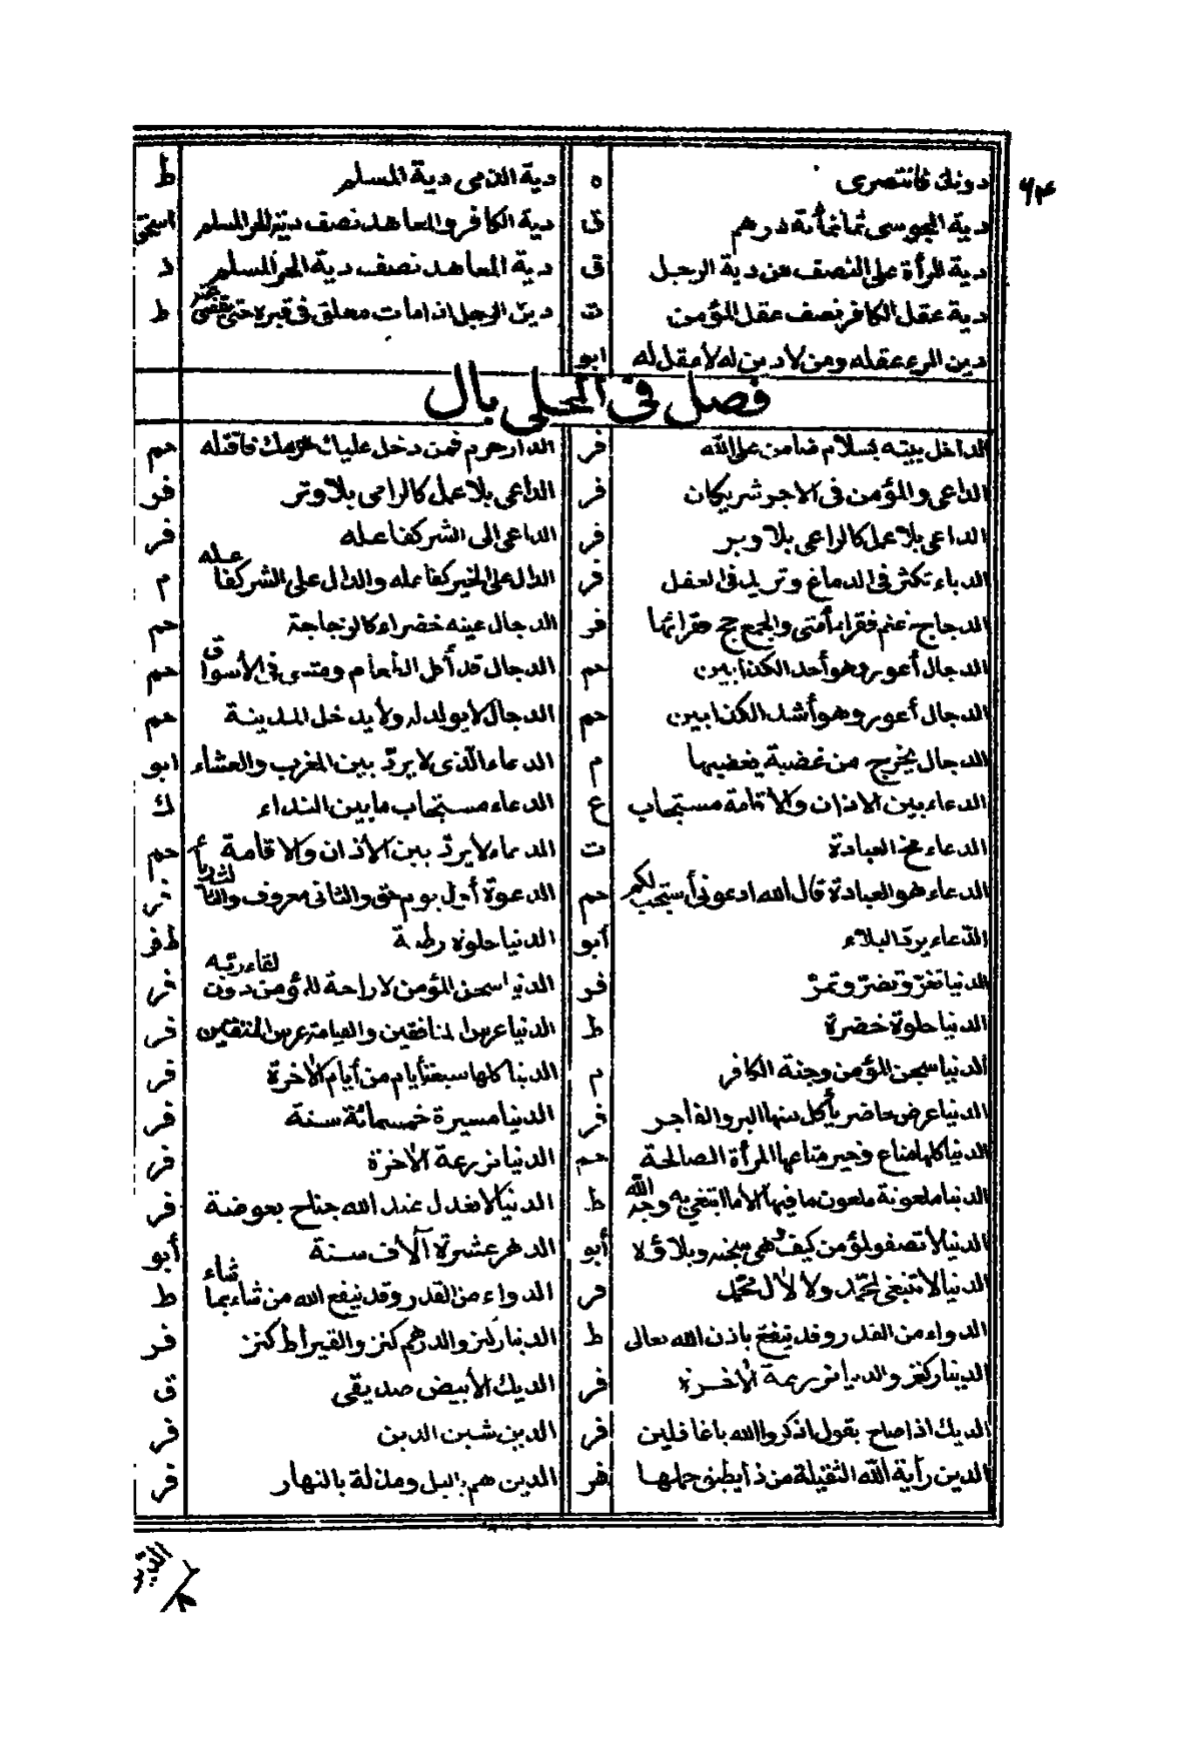 ٦٤
دونك فانتصرى ه دية الذمى دية المسلم ط
دية المجوسى ثمانمأئة درهم ق دية الكافر والمعاهد نصف دية الحر المسلم
دية المرأة على النصف من دية الرجل ق دية المعاهد نصف دية الحر المسلم د
دية عقل الكافر نصف عقل المؤمن ت دين الرجل اذا مات معلق فى قبره حتى يقضى عنه ط
دين المرء عقله ومن لا دين له لا عقل له ابو
فصل فى المحلى بال
الداخل بيته بسلام ضامن على الله فر الدار حرم فمن دخل عليك حرمك فاقتله حم
الداعى والمؤمن فى الاجر شريكان فر الداعى بلا عمل كالرامى بلا وتر فر
الداعى بلا عمل كالراعى بلا وبر فر الداعى الى الشر كفاعله فر
الدباء تكثر فى الدماغ وتزيد فى العقل فر الدال على الخير كفاعله والدال على الشر كفاعله م
الدجاج غنم فقراء أمتى والجمع حج فقرائها فر الدجال عينه خضراء كالزجاجة حم
الدجال أعور وهو أحد الكذابين حم الدجال قد أكل الطعام ومشى فى الأسواق حم
الدجال أعور وهو أشد الكذابين حم الدجال لا يولد له ولا يدخل المدينة حم
الدجال يخرج من غضبة يغضبها م الدعاء الذى لا يردّ بين المغرب والعشاء ابو
الدعاء بين الاذان والاقامة مستجاب ع الدعاء مستجاب ما بين النداء ك
الدعاء مخ العبادة ت الدعاء لا يردّ بين الأذان والاقامة حم
الدعاء هو العبادة قال الله ادعونى أستجب لكم حم الدعوة أول يوم حق والثانى معروف
الدعاء يردّ البلاء أبو الدنيا حلوة رطبة ط فر
الدنيا تغرّ وتضرّ وتمرّ فر الدنيا سجن المؤمن لا راحة للمؤمن دون لقاء ربّه فر
الدنيا حلوة خضرة ط الدنيا عرس المنافقين والقيامة عرس المتقين فر
الدنيا سجن المؤمن وجنة الكافر م الدنيا كلها سبعة أيام من أيام الآخرة فر
الدنيا عرض حاضر يأكل منها البر والفاجر فر الدنيا مسيرة خمسمائة سنة فر
الدنيا كلها متاع وخير متاعها المرأة الصالحة حم الدنيا مزرعة الآخرة فر
الدنيا ملعونة ملعون ما فيها الا ما ابتغى به وجه الله ط الدنيا لا تعدل عند الله جناح بعوضة فر
الدنيا لا تصفو لمؤمن كيف وهى سجنه وبلاؤه أبو الدهر عشرة آلاف سنة أبو
الدنيا لا تنبغى لمحمّد ولا لآل محمّد فر الدواء من القدر وقد ينفع الله من شاء بما شاء ط
الدواء من القدر وقد ينفع باذن الله تعالى ط الدينار كنز والدرهم كنز والقيراط كنز فر
الدينار كنز والدنيا مزرعة الآخرة فر الديك الأبيض صديقى ق
الديك اذا صاح يقول اذكروا الله يا غافلين فر الدين شين الدين فر
الدين راية الله الثقيلة من ذا يطيق حملها فر الدين هم بالليل ومذلة بالنهار فر